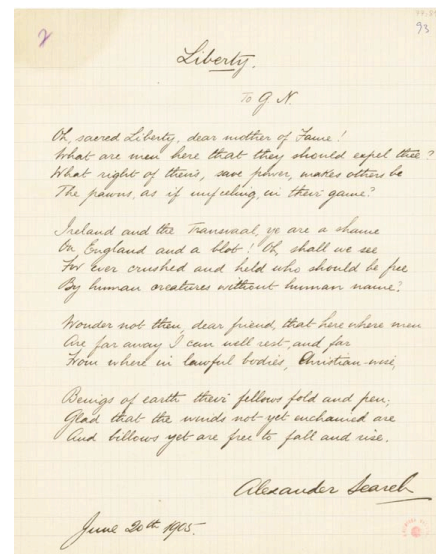 2
93
Liberty.
To G N.
Oh, sacred Liberty, dear mother of Fame!
What are men here that they should expel thee?
What right of theirs, save power, makes others be
The pawns, as if unfeeling, in their game?
Ireland and the Transvaal, ye are a shame
On England and a blot! Oh, shall we see
For ever crushed and held who should be free
By human creatures without human name?
Wonder not then, dear friend, that here where men
Are far away I can well rest, and far
From where in lawful bodies, Christian-wise,
Beings of earth their fellows fold and pen;
Glad that the winds not yet enchained are
And billows yet are free to fall and rise.
Alexander Search
June 20th 1905.